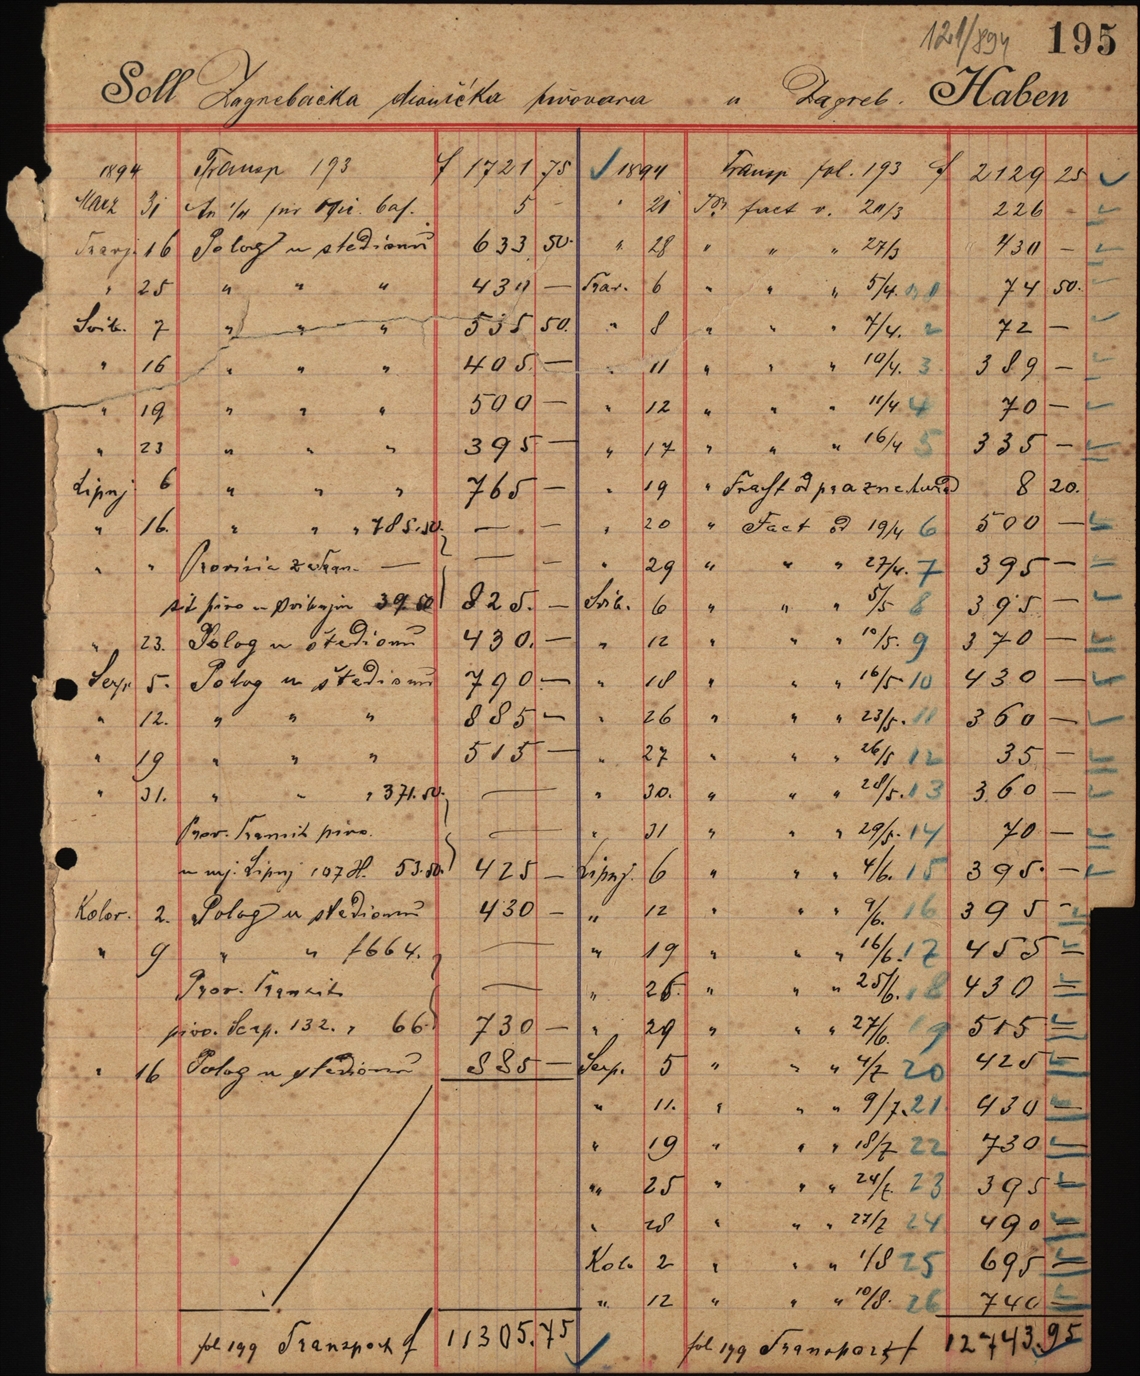 121/894 195
Soll Zagrebačka dionička pivovara u Zagreb. Haben
1894 Transp 193 f 1721 75
März 31 5 -
Travj. 16 Polog u štedionu 633 50
" 25 " " " 430 —
Svib. 7 " " " 535 50
" 16 " " " 405 —
" 19 " " " 500 —
" 23 " " " 395 —
Lipnj 6 " " " 765 —
" 16. " " " 785.50 — —
" " Provizia — — —
pivo u 39 50 825. —
" 23. Polog u štedionu 430. —
Serp. 5. Polog u štedionu 790 —
" 12. " " " 885 —
" 19 " " " 515 —
" 31. " " " 371.50 —
Prov. Transit pivo. —
u mj. Lipnj 107 H. 53.50 425 —
Kolov. 2. Polog u štedionu 430 —
" 9 " " f 664. —
Prov. Transit —
pivo. Serp. 132. " 66 730 —
" 16 Polog u štedionu 885 —
fol 199 Transport f 11305.75
1894 Transp fol. 193 f 2129 25
" 21 fact v. 20/3 226 -
" 28 " " " 27/3 430 —
Trav. 6 " " " 5/4. 1 74 50.
" 8 " " " 7/4. 2 72 —
" 11 " " " 10/4. 3 389 —
" 12 " " " 11/4 4 70 —
" 17 " " " 16/4 5 335 —
" 19 " Fracht od prazne 8 20.
" 20 " Fact od 19/4 6 500 —
" 29 " " " 27/4. 7 395 —
Svib. 6 " " " 5/5 8 395 —
" 12 " " " 10/5. 9 370 —
" 18 " " " 16/5 10 430 —
" 26 " " " 23/5. 11 360 —
" 27 " " " 26/5 12 35 —
" 30. " " " 28/5. 13 360 —
" 31 " " " 29/5. 14 70 —
Lipnj. 6 " " " 4/6. 15 395. —
" 12 " " " 9/6. 16 395 —
" 19 " " " 16/6. 17 455 —
" 26. " " " 25/6. 18 430 —
" 29 " " " 27/6. 19 515 —
Serp. 5 " " " 4/7 20 425 —
" 11. " " " 9/7. 21 430 —
" 19 " " " 18/7 22 730 —
" 25 " " " 24/7. 23 395 —
" 28 " " " 27/7 24 490 —
Kolo. 2 " " " 1/8 25 695 —
" 12 " " " 10/8. 26 740 —
fol 199 Transport f 12743.95